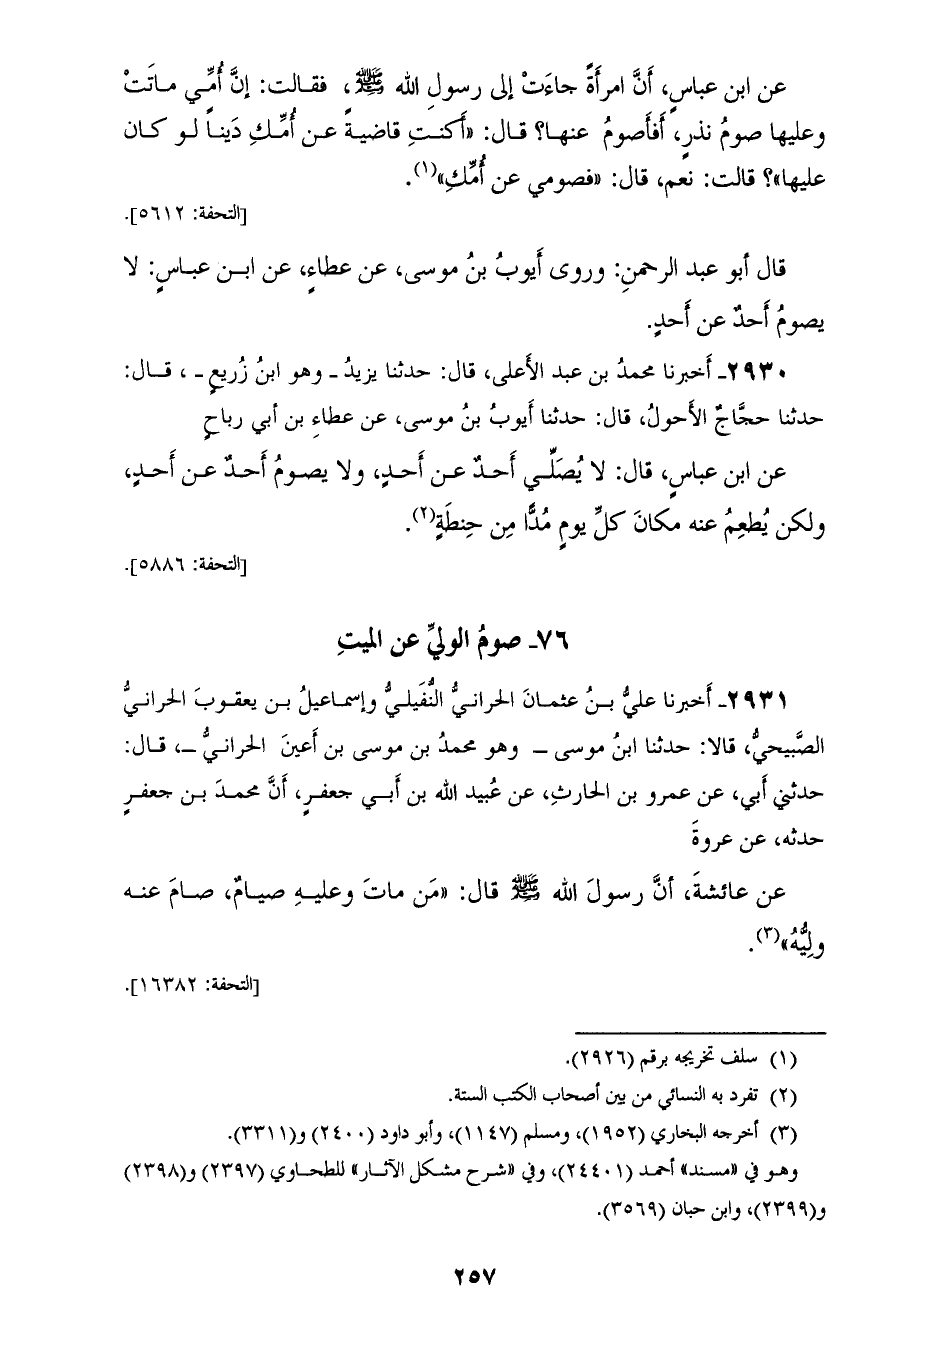 عن ابن عباسٍ، أَنَّ امرأَةً جاءَتْ إلى رسولِ الله ﷺ، فقالت: إنَّ أُمِّي ماتَتْ
وعليها صومُ نذرٍ، أَفأَصومُ عنها؟ قال: «أَكنتِ قاضيةً عن أُمِّكِ دَيناً لو كان
عليها»؟ قالت: نعم، قال: «فصومي عن أُمِّكِ»(١).
[التحفة: ٥٦١٢].
قال أبو عبد الرحمنِ: وروى أَيوبُ بنُ موسى، عن عطاءٍ، عن ابن عباسٍ: لا
يصومُ أَحدٌ عن أَحدٍ.
٢٩٣٠ـ أَخبرنا محمدُ بن عبد الأَعلى، قال: حدثنا يزيدُ ـ وهو ابنُ زُريعٍ ـ ، قال:
حدثنا حجَّاجٌ الأَحولُ، قال: حدثنا أَيوبُ بنُ موسى، عن عطاءِ بن أبي رباحٍ
عن ابن عباسٍ، قال: لا يُصَلِّي أَحدٌ عن أَحدٍ، ولا يصومُ أَحدٌ عن أَحدٍ،
ولكن يُطعِمُ عنه مكانَ كلِّ يومٍ مُدًّا مِن حِنطَةٍ(٢).
[التحفة: ٥٨٨٦].
٧٦ـ صومُ الوليِّ عن الميتِ
٢٩٣١ـ أَخبرنا عليُّ بنُ عثمانَ الحرانيُّ النُّفَيليُّ وإسماعيلُ بن يعقوبَ الحرانيُّ
الصَّبيحيُّ، قالا: حدثنا ابنُ موسى ـ وهو محمدُ بن موسى بن أَعينَ الحرانيُّ ـ، قال:
حدثني أَبي، عن عمرو بن الحارثِ، عن عُبيد الله بن أَبي جعفرٍ، أَنَّ محمدَ بن جعفرٍ
حدثه، عن عروةَ
عن عائشةَ، أنَّ رسولَ الله ﷺ قال: «مَن ماتَ وعليهِ صيامٌ، صامَ عنه
ولِيُّهُ»(٣).
[التحفة: ١٦٣٨٢].
(١) سلف تخريجه برقم (٢٩٢٦).
(٢) تفرد به النسائي من بين أصحاب الكتب الستة.
(٣) أخرجه البخاري (١٩٥٢)، ومسلم (١١٤٧)، وأبو داود (٢٤٠٠) و(٣٣١١).
وهو في «مسند» أحمد (٢٤٤٠١)، وفي «شرح مشكل الآثار» للطحاوي (٢٣٩٧) و(٢٣٩٨)
و(٢٣٩٩)، وابن حبان (٣٥٦٩).
٢٥٧